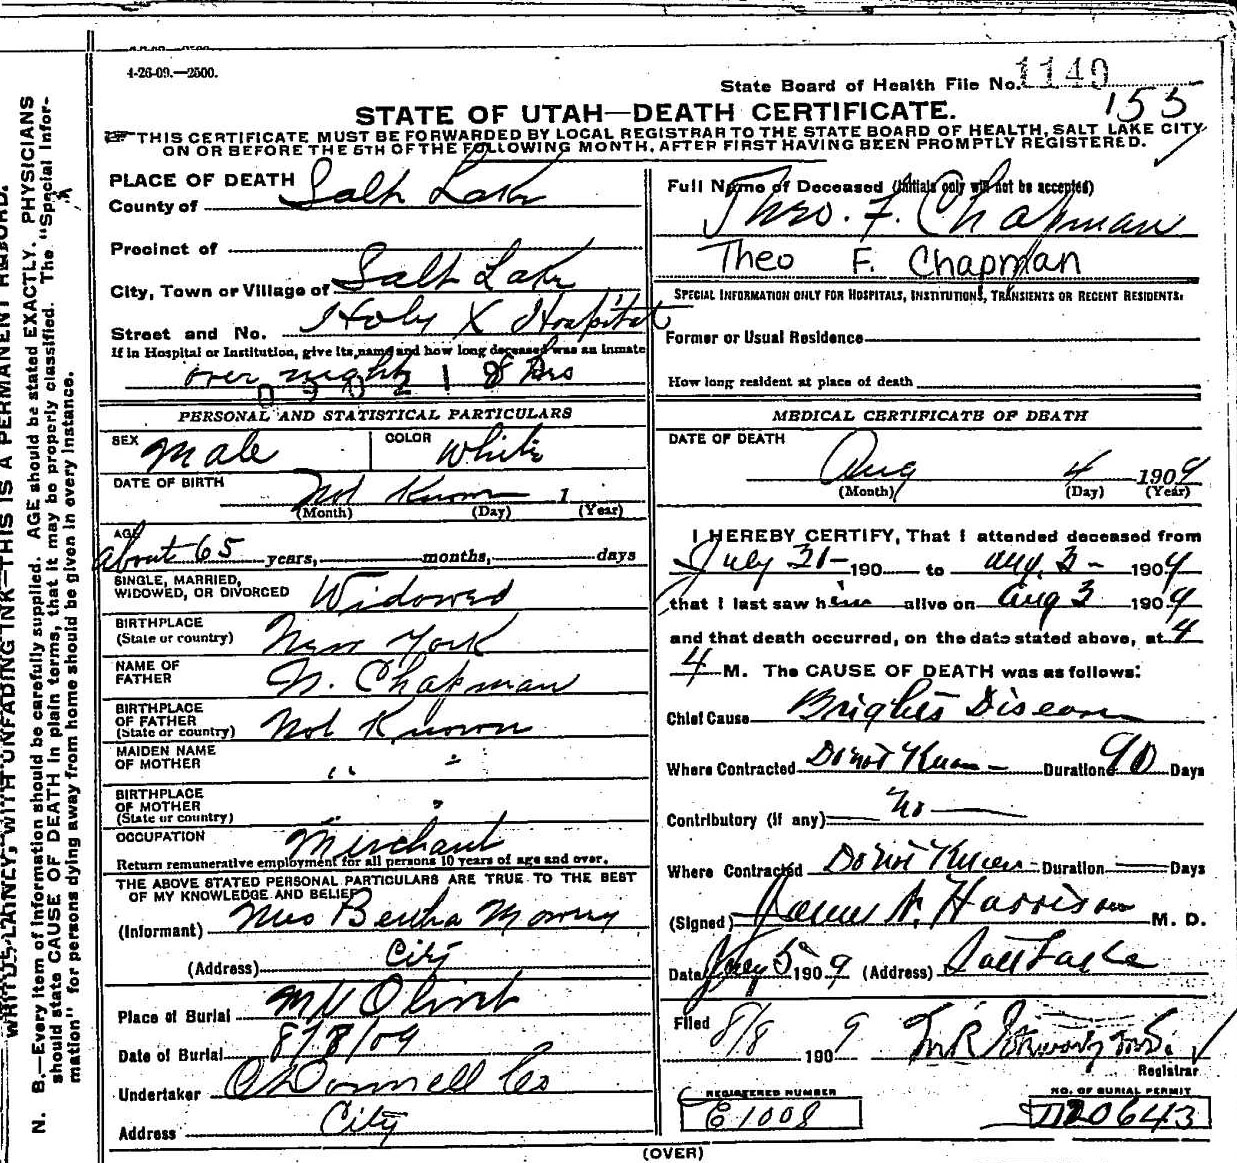 4-26-09.—2500.
State Board of Health File No. 1140
155
STATE OF UTAH—DEATH CERTIFICATE.
THIS CERTIFICATE MUST BE FORWARDED BY LOCAL REGISTRAR TO THE STATE BOARD OF HEALTH, SALT LAKE CITY
ON OR BEFORE THE 5TH OF THE FOLLOWING MONTH, AFTER FIRST HAVING BEEN PROMPTLY REGISTERED.
PLACE OF DEATH
County of Salt Lake
Precinct of
City, Town or Village of Salt Lake
Street and No. Holy X Hospital
If in Hospital or Institution, give its name and how long deceased was an inmate
over night 18 hrs
PERSONAL AND STATISTICAL PARTICULARS
SEX Male COLOR White
DATE OF BIRTH Not Known 1
(Month) (Day) (Year)
AGE about 65 years, months, days
SINGLE, MARRIED,
WIDOWED, OR DIVORCED Widowed
BIRTHPLACE
(State or country) New York
NAME OF
FATHER N. Chapman
BIRTHPLACE
OF FATHER
(State or country) Not Known
MAIDEN NAME
OF MOTHER " "
BIRTHPLACE
OF MOTHER
(State or country) "
OCCUPATION Merchant
Return remunerative employment for all persons 10 years of age and over.
THE ABOVE STATED PERSONAL PARTICULARS ARE TRUE TO THE BEST
OF MY KNOWLEDGE AND BELIEF
(Informant) Mrs Bertha Mowry
(Address) City
Place of Burial Mt Olivet
Date of Burial 8/8/09
Undertaker O'Donnell Co
Address City
Full Name of Deceased (Initials only will not be accepted)
Theo. F. Chapman
Theo F. Chapman
SPECIAL INFORMATION ONLY FOR HOSPITALS, INSTITUTIONS, TRANSIENTS OR RECENT RESIDENTS.
Former or Usual Residence
How long resident at place of death
MEDICAL CERTIFICATE OF DEATH
DATE OF DEATH
Aug 4 1909
(Month) (Day) (Year)
I HEREBY CERTIFY, That I attended deceased from
July 31 190 to Aug. 3 1909
that I last saw him alive on Aug 3 1909
and that death occurred, on the date stated above, at 4
M. The CAUSE OF DEATH was as follows:
Chief Cause Brights Disease
Where Contracted Do not Know Duration 90 Days
Contributory (if any) no
Where Contracted Do not Know Duration Days
(Signed) Harrison M. D.
Date 5 1909 (Address) Salt Lake
Filed 8/8 1909
Registrar
REGISTERED NUMBER
E 1008
NO. OF BURIAL PERMIT
20643
(OVER)
WRITE PLAINLY, WITH UNFADING INK—THIS IS A PERMANENT RECORD.
N. B.—Every item of information should be carefully supplied. AGE should be stated EXACTLY. PHYSICIANS
should state CAUSE OF DEATH in plain terms, that it may be properly classified. The "Special Infor-
mation" for persons dying away from home should be given in every instance.